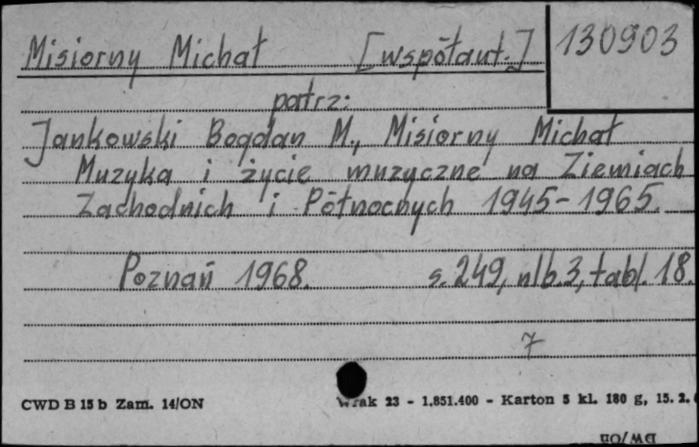 Misiorny Michał [współaut.] 130903
patrz:
Jankowski Bogdan M., Misiorny Michał
Muzyka i życie muzyczne na Ziemiach
Zachodnich i Północnych 1945-1965.
Poznań 1968. s. 249, nlb. 3, tabl. 18.
7
CWD B 15 b Zam. 14/ON 23 - 1.851.400 - Karton 5 kl. 180 g, 15. 2.